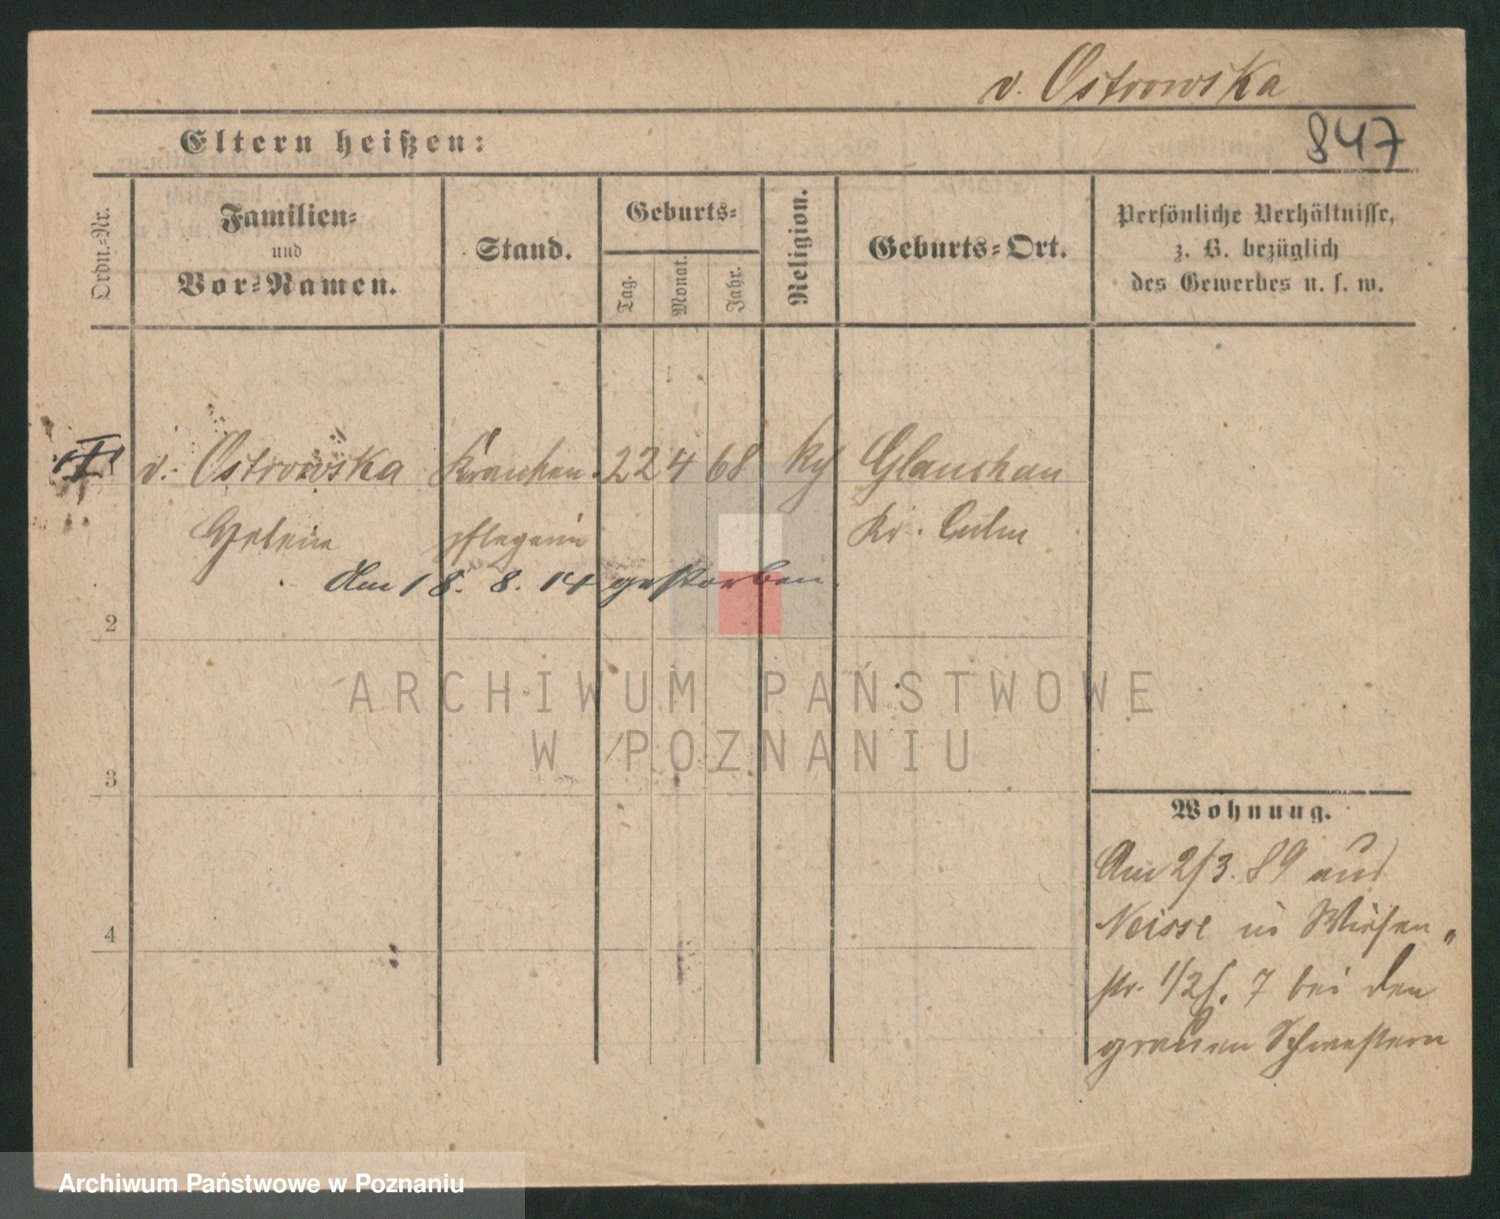 v. Ostrowska
847
Eltern heißen:
Ordn.-Nr.
Familien-
und
Vor-Namen.
Stand.
Geburts-
Tag.
Monat.
Jahr.
Religion.
Geburts-Ort.
Persönliche Verhältnisse,
z. B. bezüglich
des Gewerbes u. s. w.
v. Ostrowska Kranken- 22 4 68 Glauchau
Helene pflegerin Kr. Culm
Am 18. 8. 14 gestorben.
2
ARCHIWUM PAŃSTWOWE
W POZNANIU
3
4
Wohnung.
Am 2/3. 89 aus
Neisse in Wiesen-
str. 1/2 7 bei den
grauen Schwestern
Archiwum Państwowe w Poznaniu